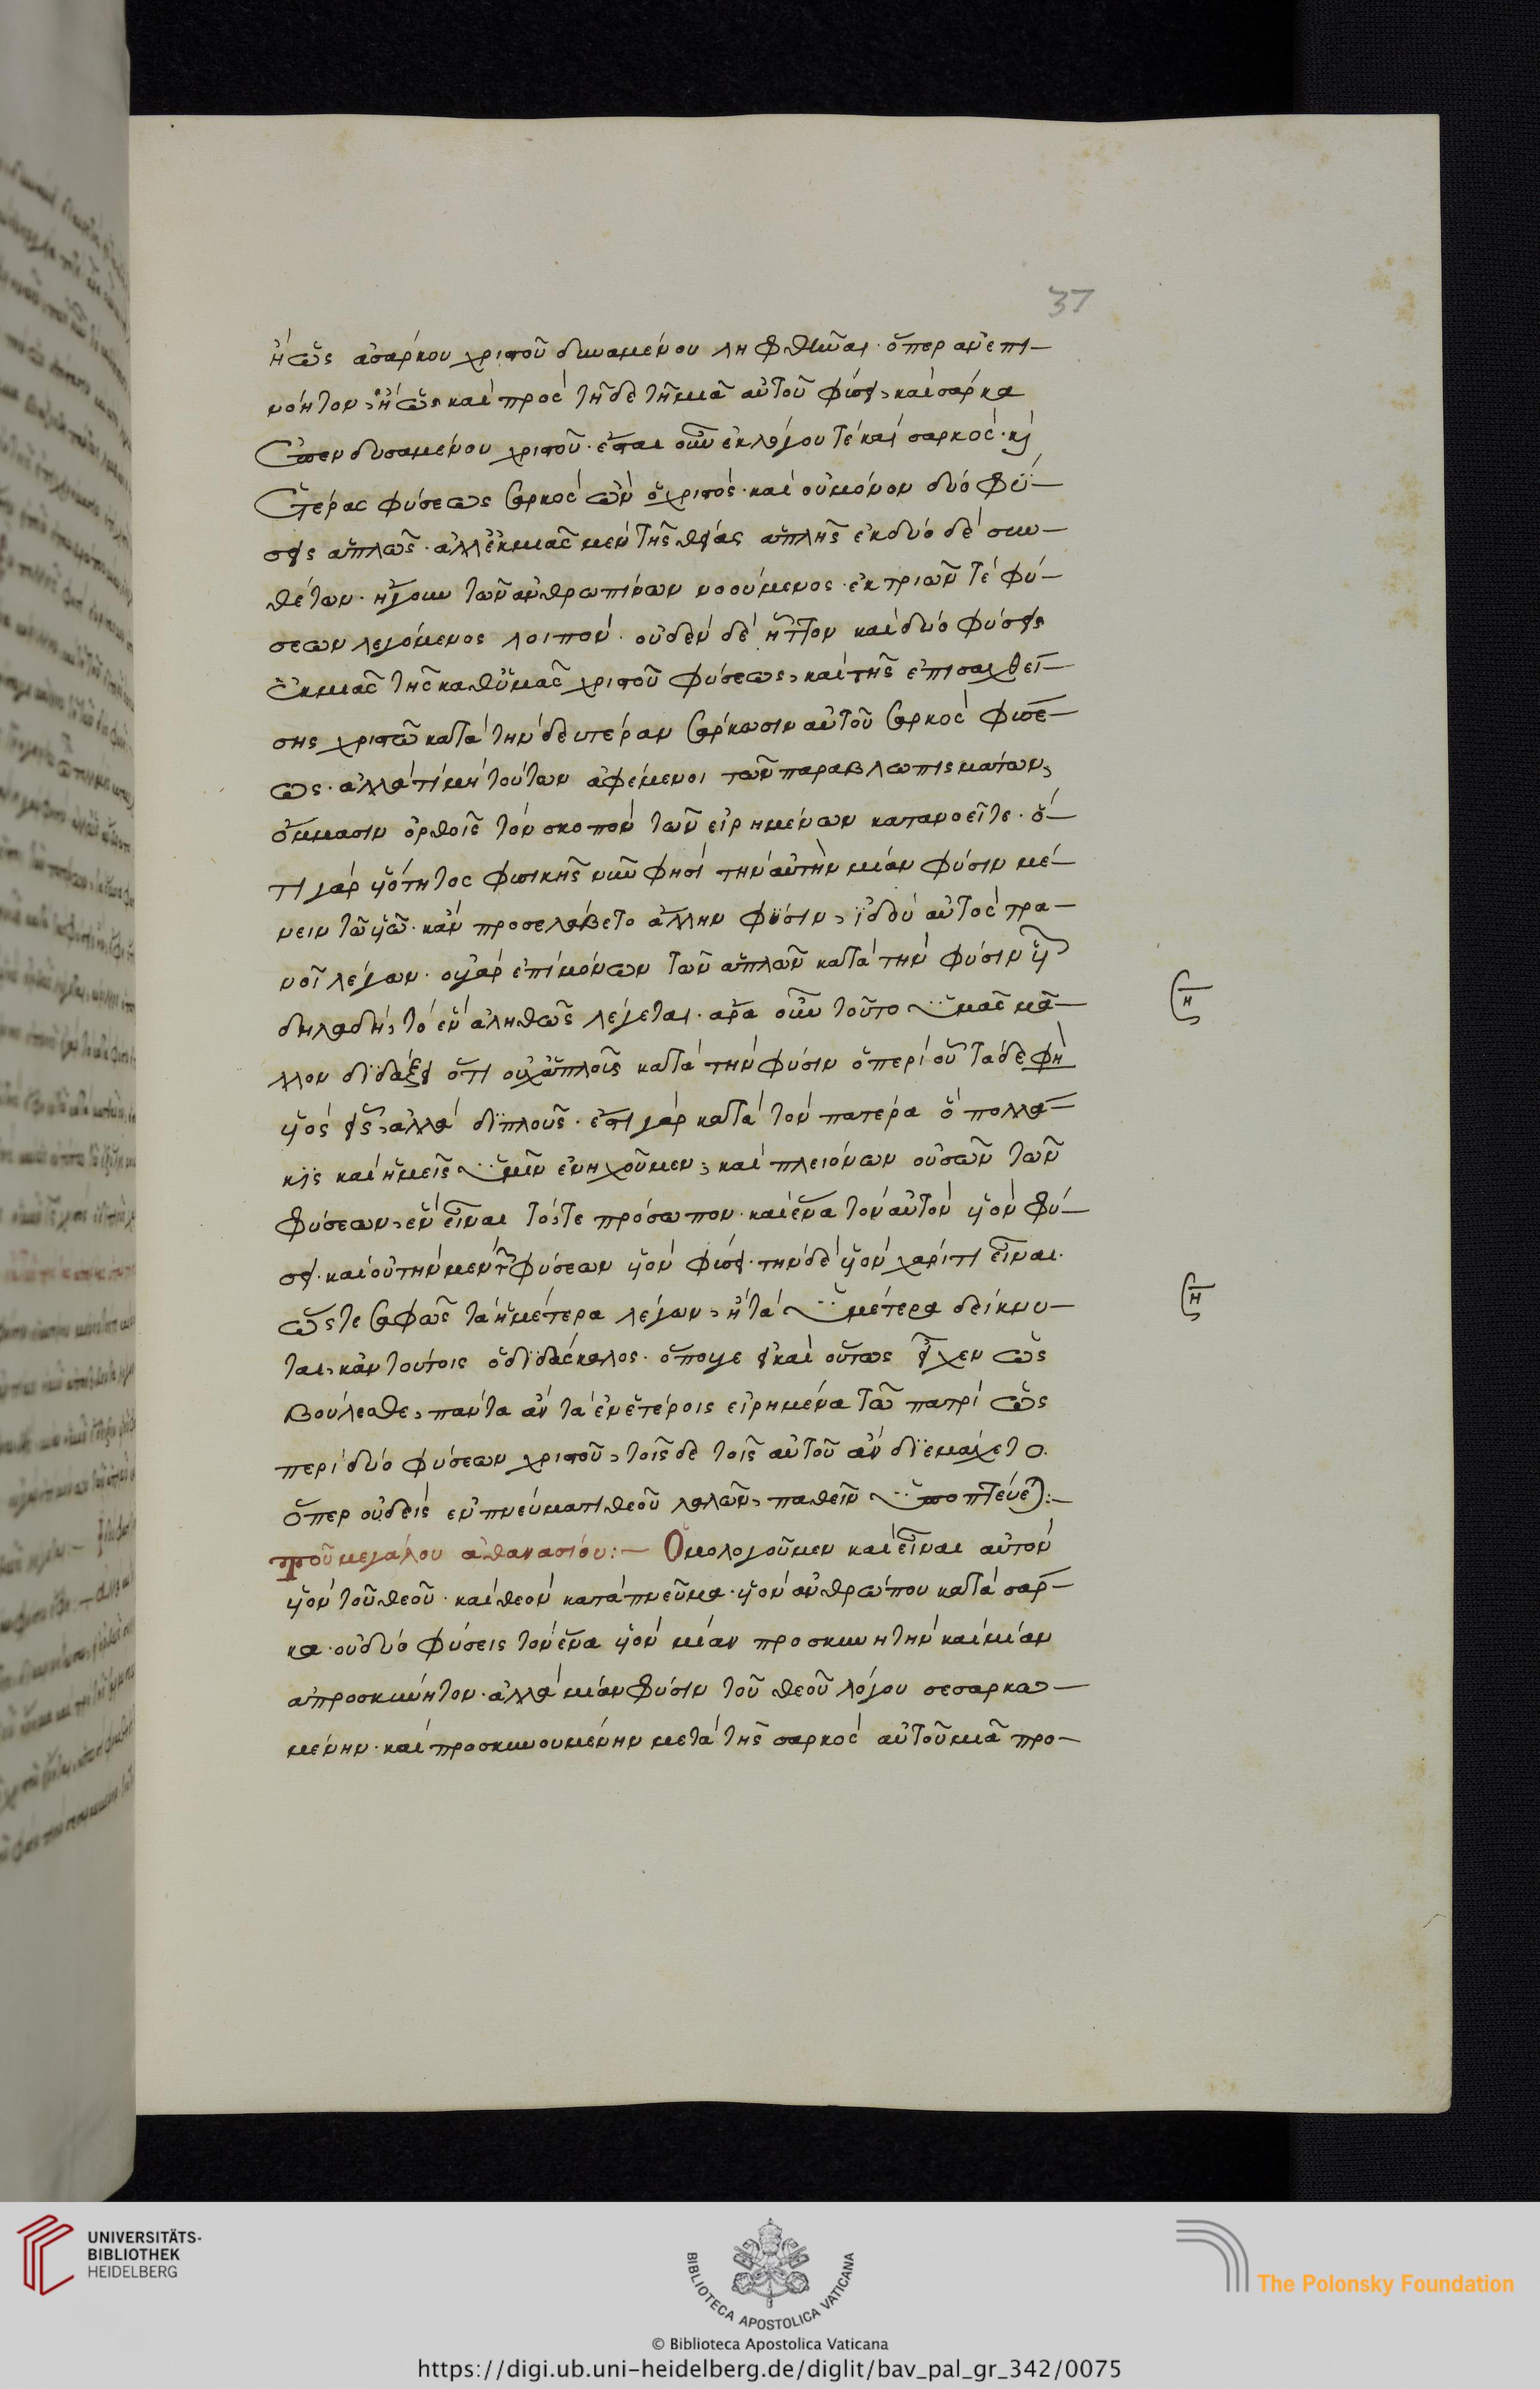 37
ἢ ὡς ἀσάρκου χριστοῦ δυναμένου ληφθῆναι· ὅπερ ἀνεπι-
νόητον, ἢ ὡς καὶ πρὸς τῆδε τῇ μιᾷ αὐτοῦ φύσει, καὶ σάρκα
ἐπενδυσαμένου χριστοῦ· ἔσται οὖν ἐκ λόγου τὲ καὶ σαρκὸς· κὶ
ἑτέρας φύσεως σαρκὸς ὢν ὁ χριστός· καὶ οὐ μόνον δύο φύ-
σεις ἁπλῶς· ἀλλ' ἐκ μιᾶς μὲν τῆς θείας ἁπλῆς ἐκ δύο δὲ συν-
θέτων· ἤγουν τῶν ἀνθρωπίνων νοούμενος· ἐκ τριῶν τὲ φύ-
σεων λεγόμενος λοιπὸν· οὐδὲν δὲ ἧττον καὶ δύο φύσεις
ἐκ μιᾶς τῆς καθ' ὑμᾶς χριστοῦ φύσεως, καὶ τῆς ἐπισαχθεί-
σης χριστῶ κατὰ τὴν δευτέραν σάρκωσιν αὐτοῦ σαρκὸς φύσε-
ως· ἀλλὰ τί μὴ τούτων ἀφέμενοι τῶν παραβλωπισμάτων,
ὄμμασιν ὀρθοῖς τὸν σκοπὸν τῶν εἰρημένων κατανοεῖτε· ὅ-
τι γὰρ υἱότητος φυσικῆς νῦν φησὶ τὴν αὐτὴν μίαν φύσιν μέ-
νειν τῶ υἱῶ· κἂν προσελάβετο ἄλλην φύσιν, ἰδοὺ αὐτὸς τρα-
νοῖ λέγων· οὐ γὰρ ἐπὶ μόνων τῶν ἁπλῶν κατὰ τὴν φύσιν
δηλαδὴ, τὸ ἓν ἀληθῶς λέγεται· ἆρα οὖν τοῦτο ὑμᾶς μᾶ-
λλον διδάξει ὅτι οὐχ ἁπλοῦς κατὰ τὴν φύσιν ὁ περὶ οὗ τάδε φη
υἱός εἷς, ἀλλὰ διπλοῦς· ἔστι γὰρ κατὰ τὸν πατέρα ὃ πολλά-
κις καὶ ἡμεῖς ὑμῖν ἐνηχοῦμεν, καὶ πλειόνων οὐσῶν τῶν
φύσεων, ἓν εἶναι τό, τε πρόσωπον· καὶ ἕνα τὸν αὐτὸν υἱὸν φύ-
σει· καὶ οὐ τὴν μὲν τ φύσεων υἱὸν φύσει· τὴν δὲ υἱὸν χάριτι εἶναι·
ὥστε σαφῶς τὰ ἡμέτερα λέγων, ἢ τὰ ὑμέτερα δείκνυ-
ται, κἂν τούτοις ὁ διδάσκαλος· ὅπου γε εἰ καὶ οὕτως εἶχεν ὡς
βούλεσθε, πάντα ἂν τὰ ἐν ἑτέροις εἰρημένα τῶ πατρὶ ὡς
περὶ δύο φύσεων χριστοῦ, τοῖς δε τοῖς αὐτοῦ ἂν διεμάχετο·
ὅπερ οὐδεὶς ἐν πνεύματι θεοῦ λαλῶν, παθεῖν ὑποπτεύε:-
Τοῦ μεγάλου ἀθανασίου:- Ὁμολογοῦμεν καὶ εἶναι αὐτὸν
υἱὸν τοῦ θεοῦ· καὶ θεὸν κατὰ πνεῦμα· υἱὸν ἀνθρώπου κατὰ σάρ-
κα· οὐ δύο φύσεις τὸν ἕνα υἱὸν μίαν προσκυνητὴν καὶ μίαν
ἀπροσκύνητον· ἀλλὰ μίαν φύσιν τοῦ θεοῦ λόγου σεσαρκω-
μένην· καὶ προσκυνουμένην μετὰ τῆς σαρκὸς αὐτοῦ μιᾷ προ-
UNIVERSITÄTS-
BIBLIOTHEK
HEIDELBERG
BIBLIOTECA APOSTOLICA VATICANA
The Polonsky Foundation
© Biblioteca Apostolica Vaticana
https://digi.ub.uni-heidelberg.de/diglit/bav_pal_gr_342/0075